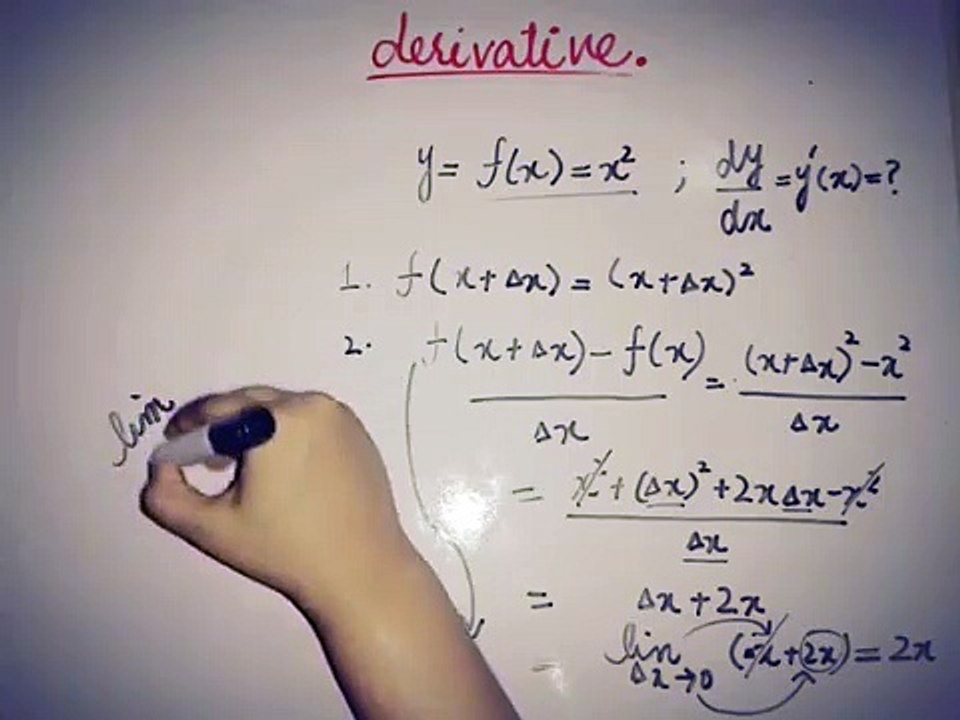 derivative.
y = f(x) = x² ; dy/dx = y'(x) = ?
1. f(x+Δx) = (x+Δx)²
2. (f(x+Δx) − f(x))/Δx = ((x+Δx)² − x²)/Δx
= (x² + (Δx)² + 2xΔx − x²)/Δx
= Δx + 2x
= lim Δx→0 (Δx + 2x) = 2x
lim